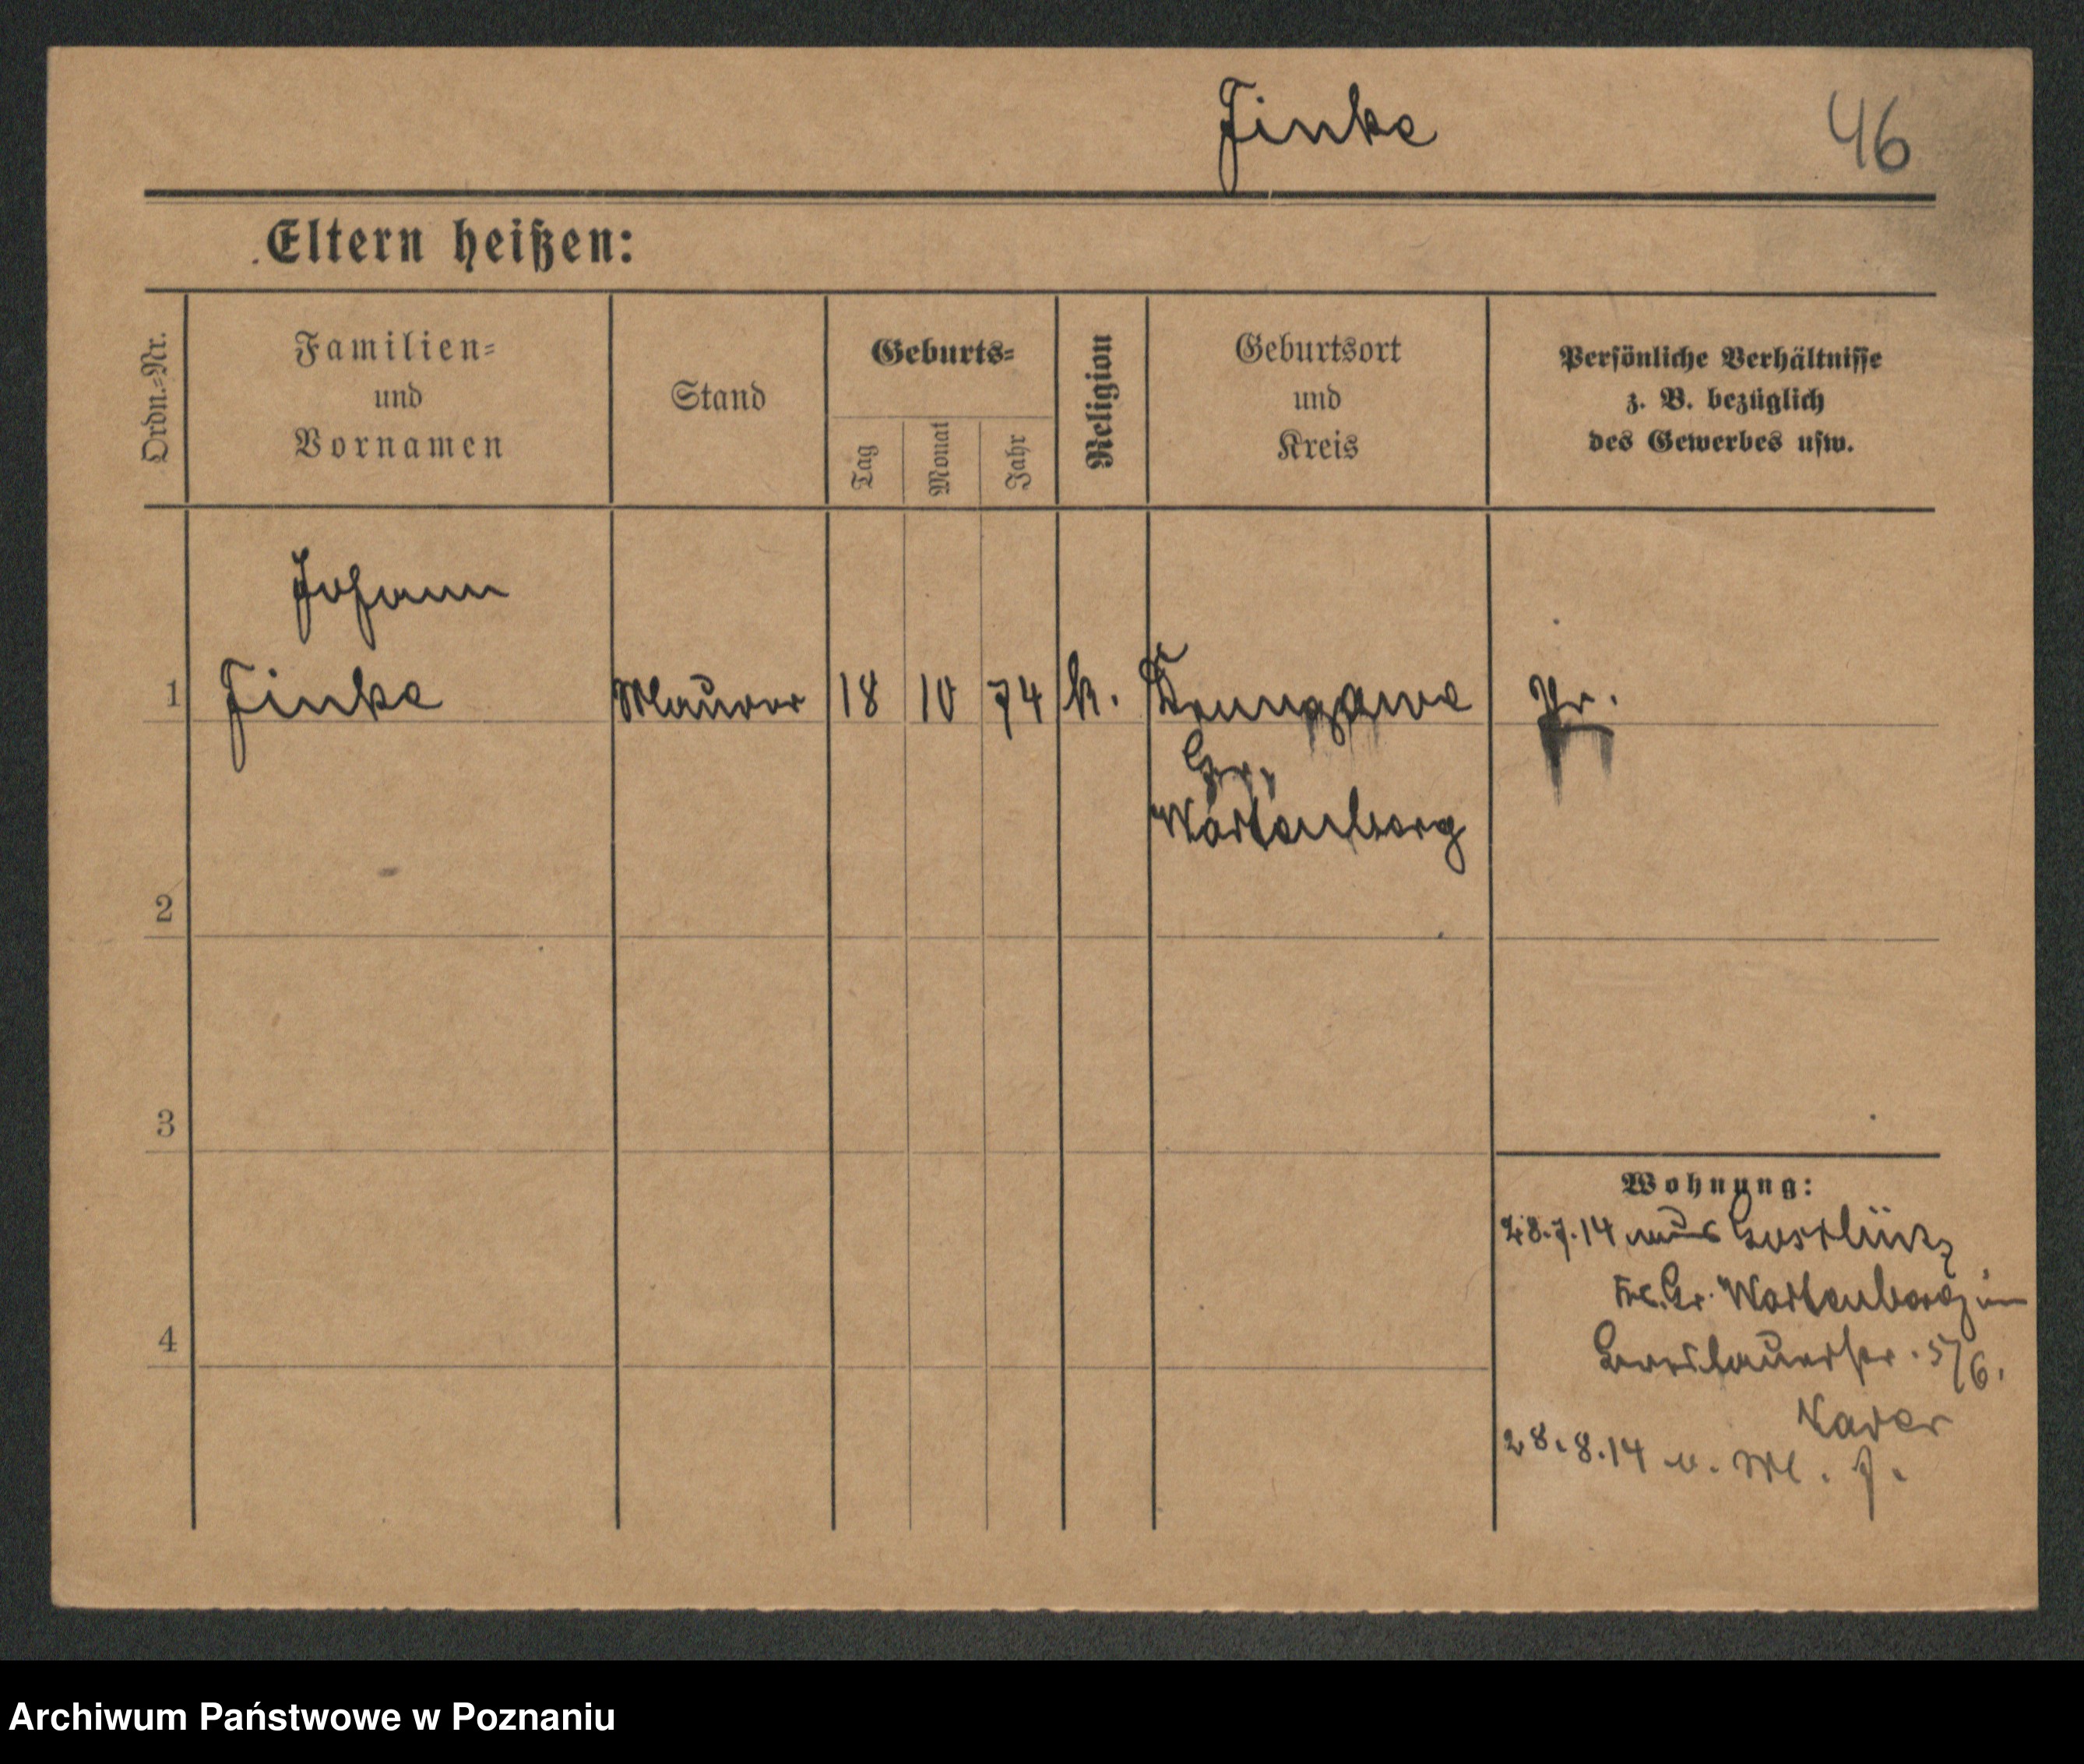 Finke
46
Eltern heißen:
Ordn.-Nr.
Familien-
und
Vornamen
Stand
Geburts-
Tag
Monat
Jahr
Religion
Geburtsort
und
Kreis
Persönliche Verhältnisse
z. B. bezüglich
des Gewerbes usw.
Johann
1 Finke Maurer 18 10 74 k. Pr.
Gr.
Wartenberg
2
3
4
Wohnung:
28.7.14 aus
Gr. Wartenberg in
Breslauerstr. 5/6.
28.8.14 u.
Archiwum Państwowe w Poznaniu